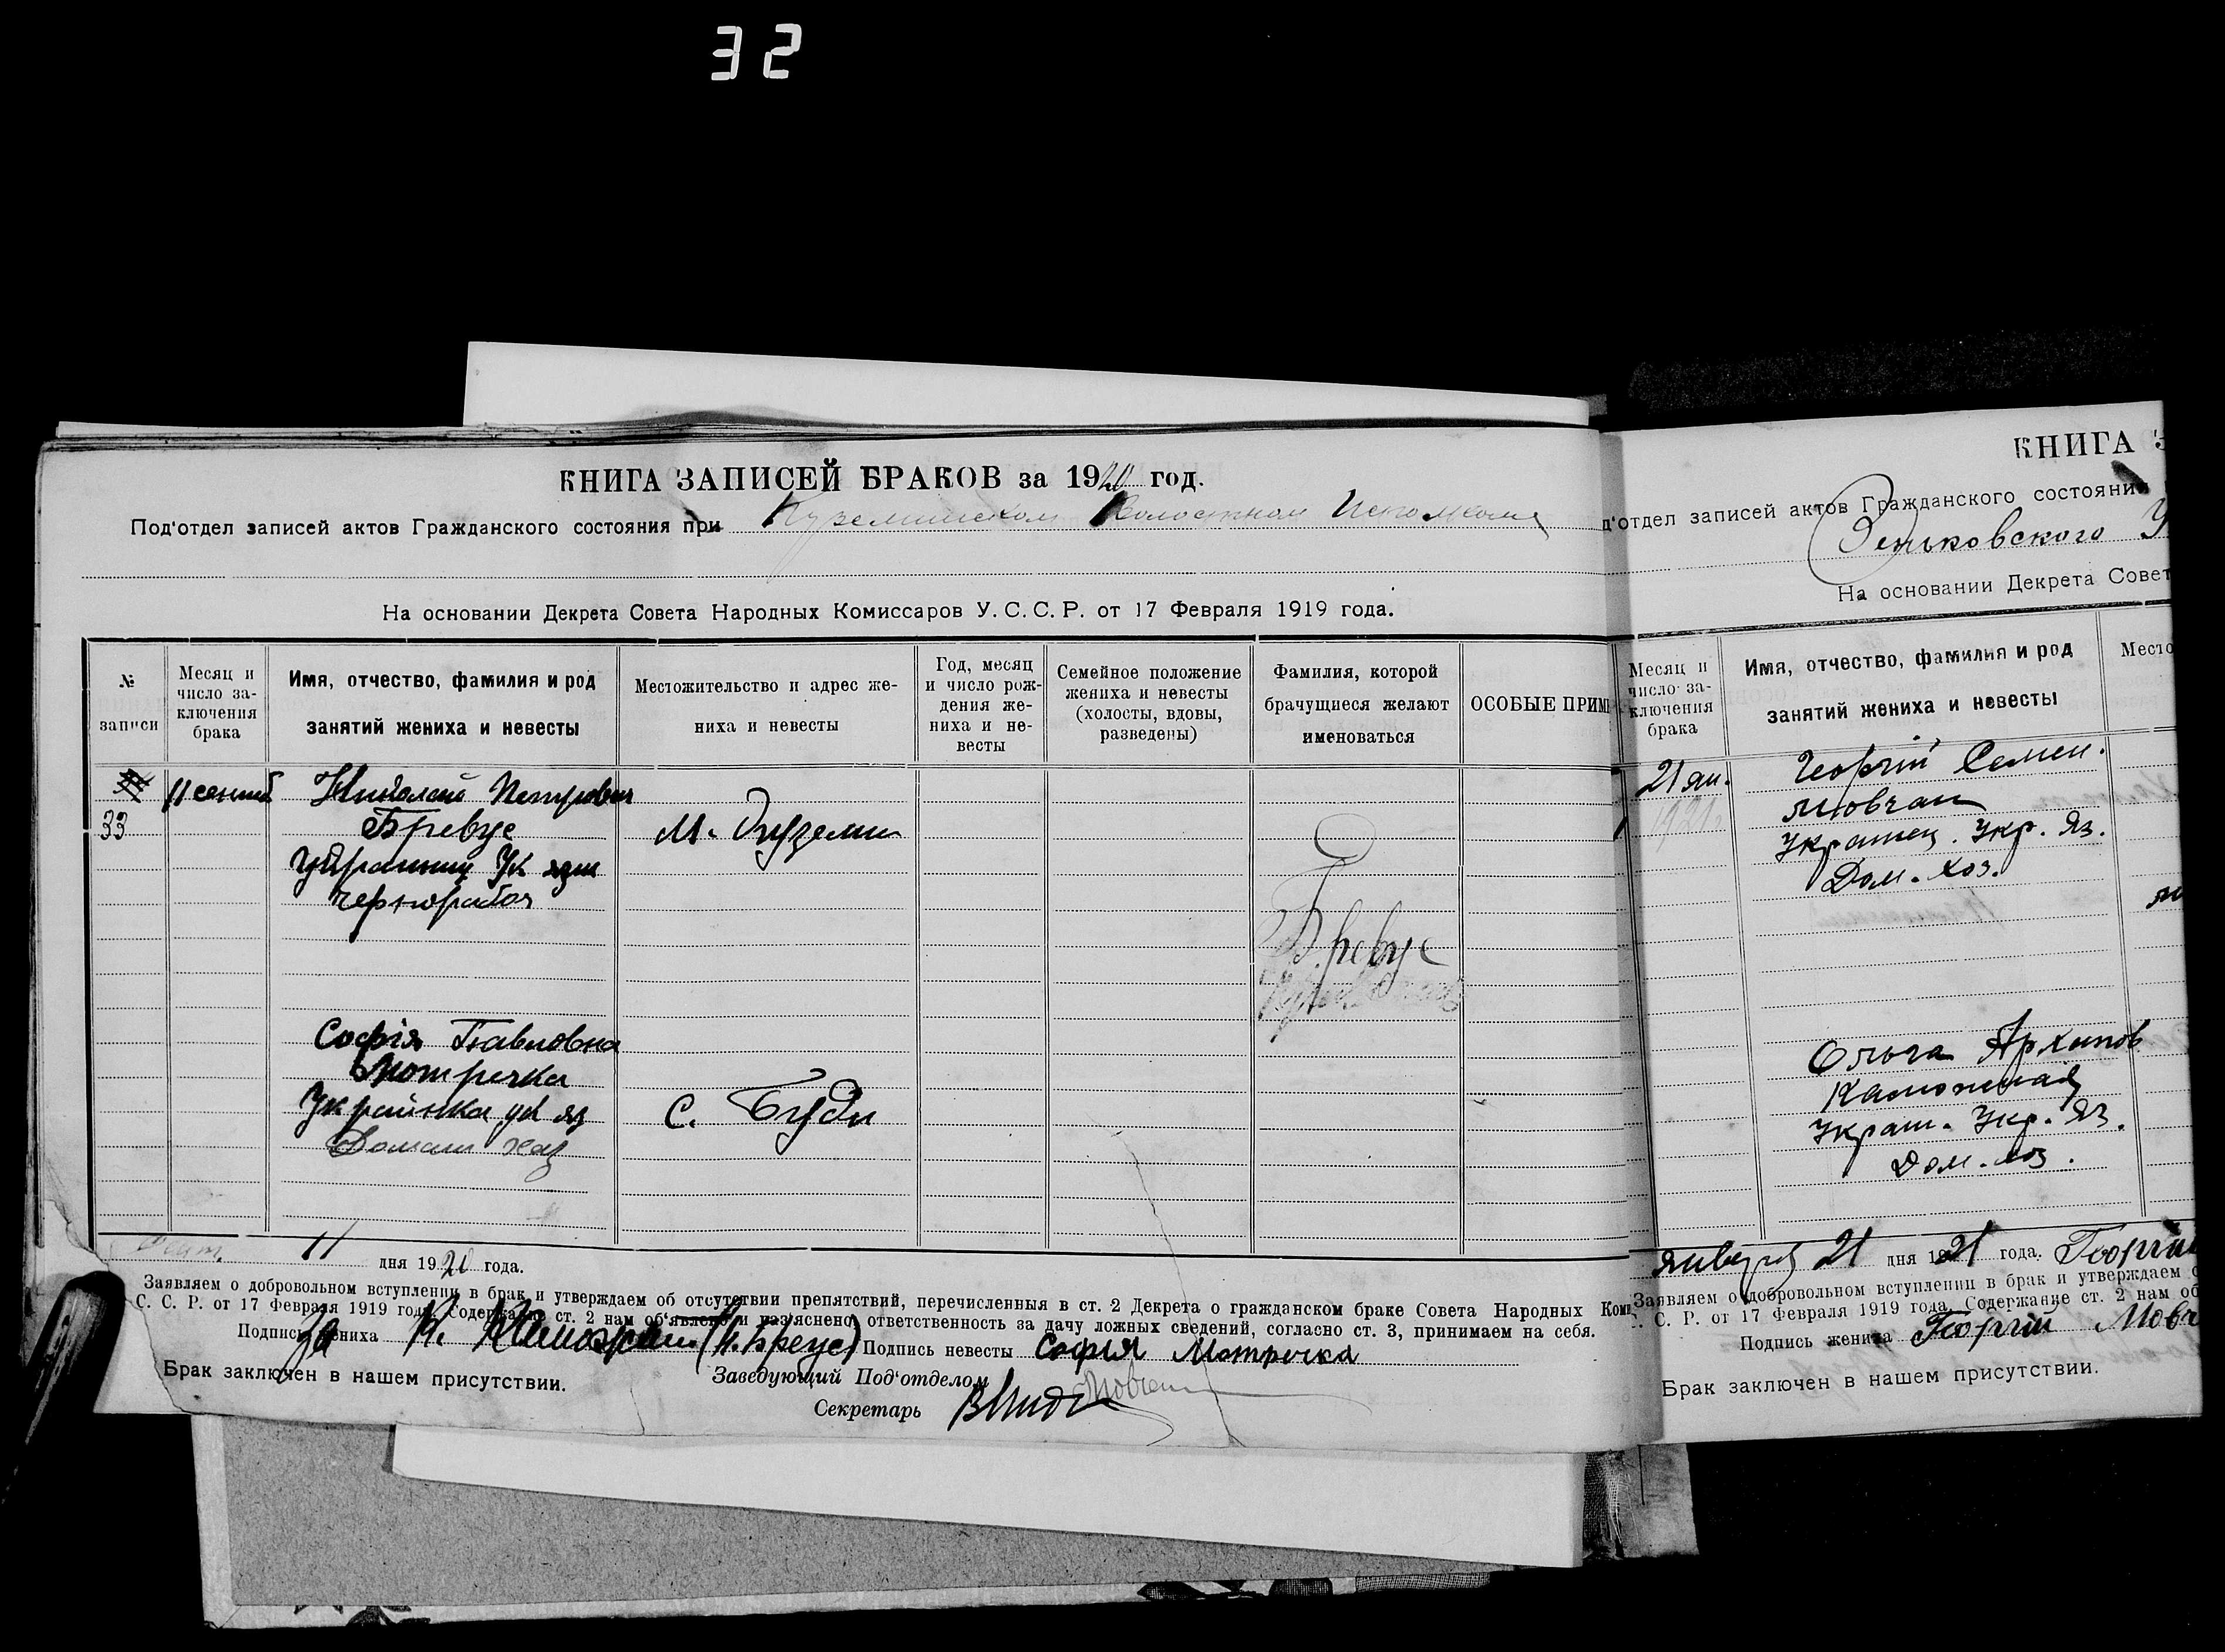 32
КНИГА ЗАПИСЕЙ БРАКОВ за 1920 год.
Под'отдел записей актов Гражданского состояния при Куземинском Волостном Исполкоме
На основании Декрета Совета Народных Комиссаров У. С. С. Р. от 17 Февраля 1919 года.
№ записи
Месяц и число за-ключения брака
Имя, отчество, фамилия и род занятий жениха и невесты
Местожительство и адрес же-ниха и невесты
Год, месяц и число рож-дения же-ниха и не-весты
Семейное положение жениха и невесты (холосты, вдовы, разведены)
Фамилия, которой брачущиеся желают именоваться
ОСОБЫЕ ПРИМ
33
11
Николай Петрович
Бревус
Ук
чернорабоч
М.
Бревус
Софія Павловна
Мотречка
Українка ук яз
Домаш хоз
С. Буди
11 дня 1920 года.
Заявляем о добровольном вступлении в брак и утверждаем об отсутствии препятствий, перечисленныя в ст. 2 Декрета о гражданском браке Совета Народных Ком
С. С. Р. от 17 Февраля 1919 года. Содержание ст. 2 нам об'явлено и раз'яснено, ответственность за дачу ложных сведений, согласно ст. 3, принимаем на себя.
Подпись жениха За Н. (Н. Бреус) Подпись невесты Софія Мотречка
Брак заключен в нашем присутствии.
Заведующий Под'отделом Мовчан
Секретарь
КНИГА З
д'отдел записей актов Гражданского состояния
Зеньковского У
На основании Декрета Совет
Месяц и число за-ключения брака
Имя, отчество, фамилия и род занятий жениха и невесты
Место
21 ян.
1921
Георгій Семен.
Мовчан
Украинец. Укр. Яз.
Дом. хоз.
Ольга Архипов
Украин. Укр. Яз.
Дом. хоз.
января 21 дня 1921 года. Георгій
Заявляем о добровольном вступлении в брак и утверждаем о
С. С. Р. от 17 Февраля 1919 года. Содержание ст. 2 нам об
Подпись жениха Георгій Мовч
Брак заключен в нашем присутствии.